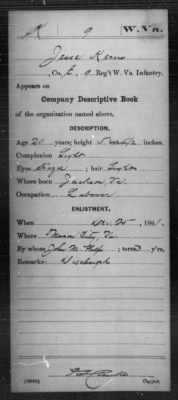 K 9 W. Va.
Jesse Kerns
, Co. E, 9 Reg't W. Va. Infantry.
Appears on
Company Descriptive Book
of the organization named above.
DESCRIPTION.
Age 20 years; height 5 feet inches.
Complexion Light
Eyes ; hair Light
Where born Jackson, Va.
Occupation Laborer
ENLISTMENT.
When Dec. 25, 1861.
Where Mason City, Va.
By whom John M. Phelps; term 3 y'rs.
Remarks:
Copyist.